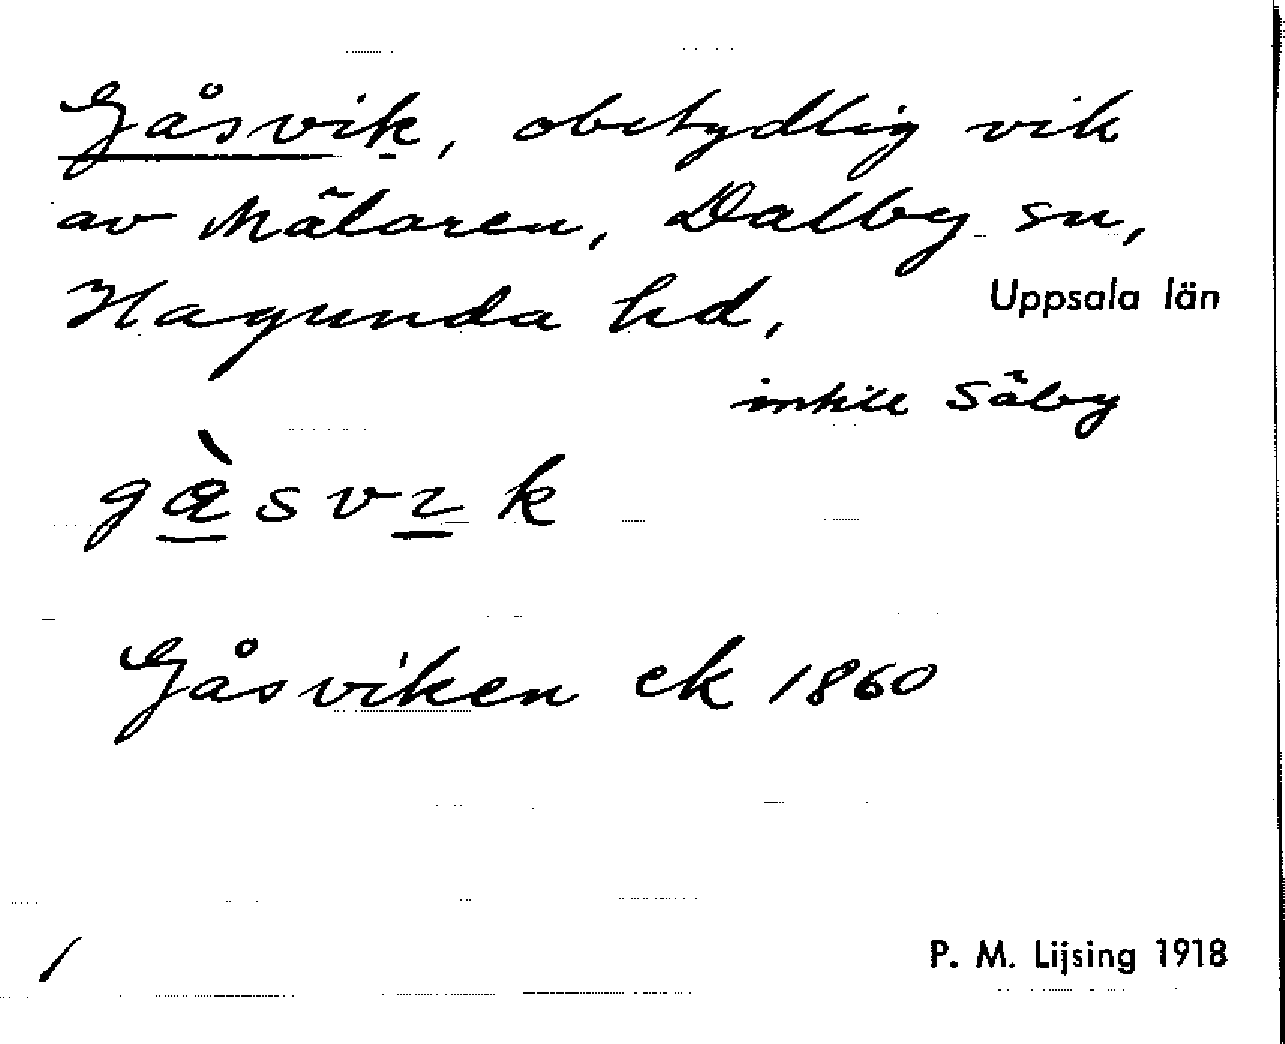 Gåsvik, obetydlig vik
av Mälaren, Dalby sn,
Hagunda hd, Uppsala län
intill Säby
Gåsviken ek 1860
/
P. M. Lijsing 1918